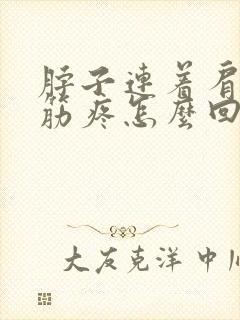 脖子連着肩
筋疼怎麼回
大友克洋中